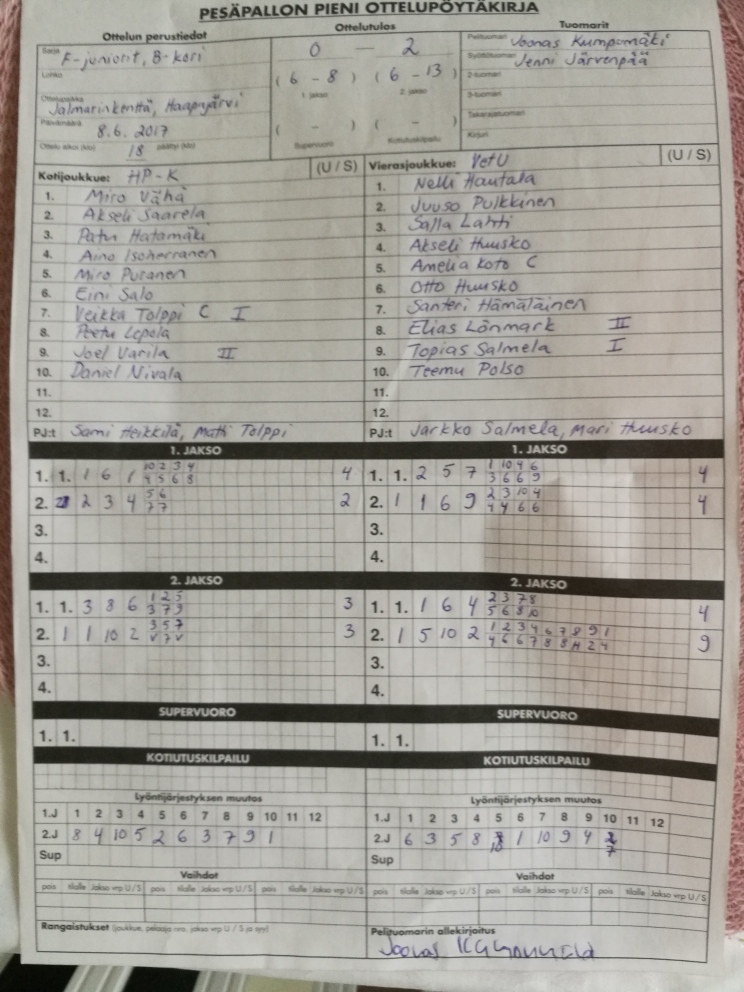 PESÄPALLON PIENI OTTELUPÖYTÄKIRJA
Ottelun perustiedot Ottelutulos Tuomarit
Sarja F-juniorit, B-kori
Lohko
Ottelupaikka Jalmarinkenttä, Haapajärvi
Päivämäärä 8.6.2017
Ottelu alkoi (klo) 18 päättyi (klo)
0 – 2
(6 – 8) (6 – 13)
1. jakso 2. jakso
( - ) ( - )
Supervuoro Kotiutuskilpailu
Pelituomari Joonas Kumpumäki
Syöttötuomari Jenni Järvenpää
2-tuomari
3-tuomari
Takarajatuomari
Kirjuri
Kotijoukkue: HP-K (U / S)
1. Miro Vähä
2. Akseli Saarela
3. Patu Hatamäki
4. Aino Isoherranen
5. Miro Puranen
6. Eini Salo
7. Veikka Tolppi C I
8. Peetu Lepola
9. Joel Varila II
10. Daniel Nivala
11.
12.
PJ:t Sami Heikkilä, Matti Tolppi
Vierasjoukkue: VetU (U / S)
1. Nelli Hautala
2. Juuso Pulkkinen
3. Salla Lahti
4. Akseli Huusko
5. Amelia Koto C
6. Otto Huusko
7. Santeri Hämäläinen
8. Elias Lönmark II
9. Topias Salmela I
10. Teemu Polso
11.
12.
PJ:t Jarkko Salmela, Mari Huusko
1. JAKSO
1. 1. 1 6 1 10 2 3 4 4
4 5 6 8
2. 2 3 4 5 6 2
7 7
3.
4.
1. JAKSO
1. 1. 2 5 7 1 10 4 6 4
3 6 6 9
2. 1 1 6 9 2 3 10 4 4
4 4 6 6
3.
4.
2. JAKSO
1. 1. 3 8 6 1 2 5 3
3 7 9
2. 1 1 10 2 3 5 7 3
3.
4.
2. JAKSO
1. 1. 1 6 4 2 3 7 8 4
5 6 8 10
2. 1 5 10 2 1 2 3 4 6 7 8 9 1 9
4 6 6 7 8 8 2 4
3.
4.
SUPERVUORO
1. 1.
SUPERVUORO
1. 1.
KOTIUTUSKILPAILU
KOTIUTUSKILPAILU
Lyöntijärjestyksen muutos
1.J 1 2 3 4 5 6 7 8 9 10 11 12
2.J 8 4 10 5 2 6 3 7 9 1
Sup
Lyöntijärjestyksen muutos
1.J 1 2 3 4 5 6 7 8 9 10 11 12
2.J 6 3 5 8 1 10 9 4 2
10 7
Sup
Vaihdot
pois tilalle Jakso vrp U/S pois tilalle Jakso vrp U/S pois tilalle Jakso vrp U/S
Vaihdot
pois tilalle Jakso vrp U/S pois tilalle Jakso vrp U/S pois tilalle Jakso vrp U/S
Rangaistukset (joukkue, pelaaja nro, jakso vrp U / S ja syy)
Pelituomarin allekirjoitus
Joonas